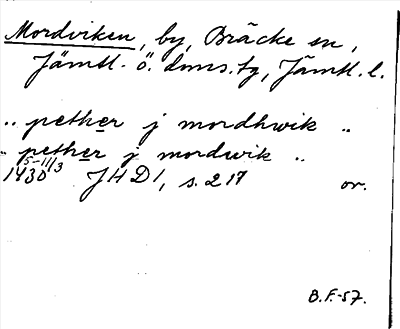 Mordviken, by, Bräcke sn,
Jämtl. ö. doms. tg, Jämtl. l.
.. pether j mordhwik ..
.. pether j mordwik ..
1430 5-11/3 JHD 1, s. 217 or.
B.F.-57.